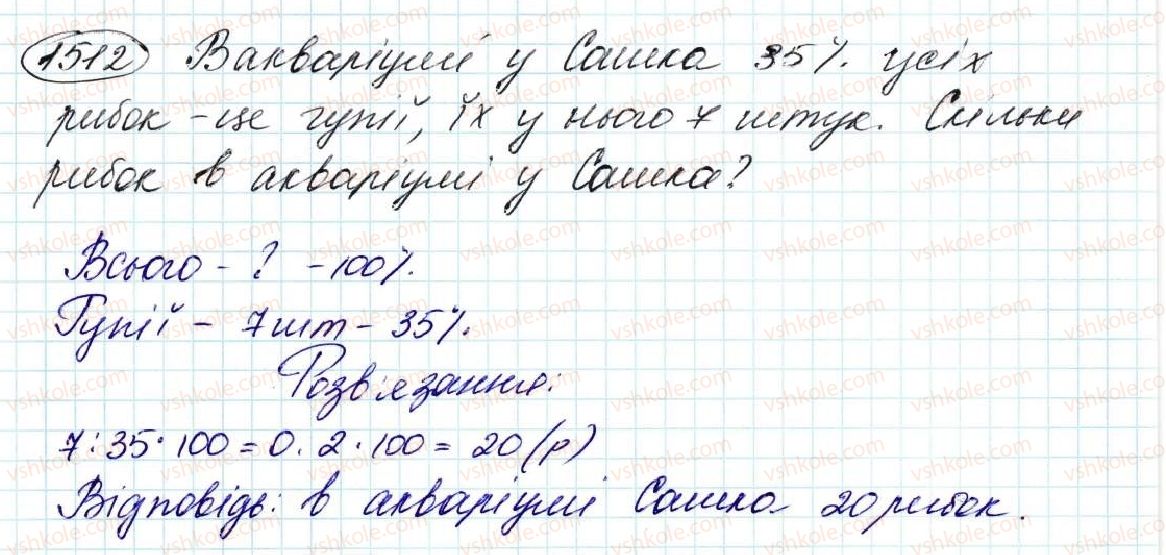 1512 В акваріумі у Сашка 35%. усіх
рибок - це гупії, їх у нього 7 штук. Скільки
рибок в акваріумі у Сашка?
Всього - ? - 100%.
Гупії - 7 шт - 35%.
Розв'язання:
7:35·100 = 0.2·100 = 20 (р)
Відповідь: в акваріумі Сашка 20 рибок.